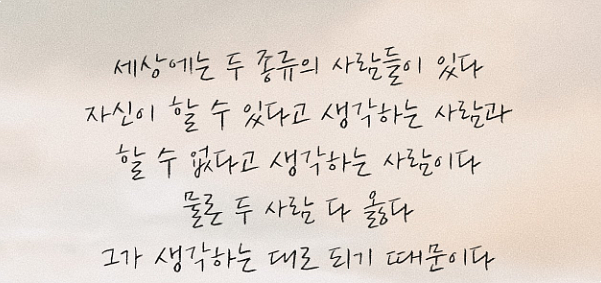 세상에는 두 종류의 사람들이 있다
자신이 할 수 있다고 생각하는 사람과
할 수 없다고 생각하는 사람이다
물론 두 사람 다 옳다
그가 생각하는 대로 되기 때문이다